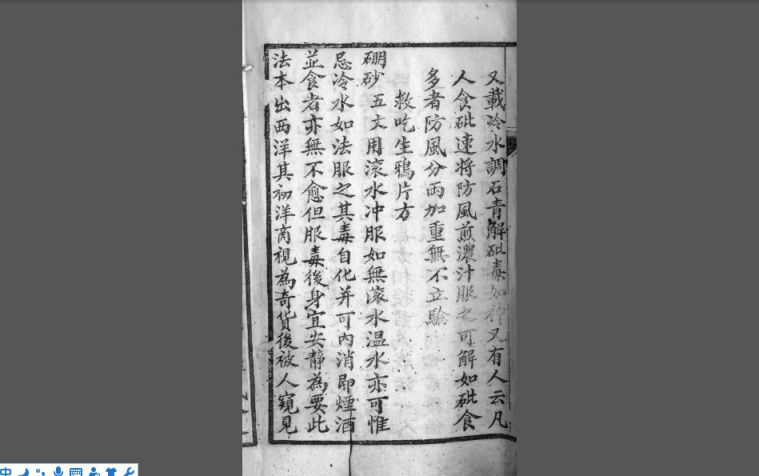 又載冷水調石青解砒毒如神又有人云凡
人食砒速將防風煎濃汁服之可解如砒食
多者防風分兩加重無不立驗
救吃生鴉片方
硼砂五文用滾水冲服如無滾水温水亦可惟
忌冷水如法服之其毒自化并可内消即煙酒
並食者亦無不愈但服毒後身宜安静為要此
法本出西洋其初洋商視為奇貨後被人窺見
中